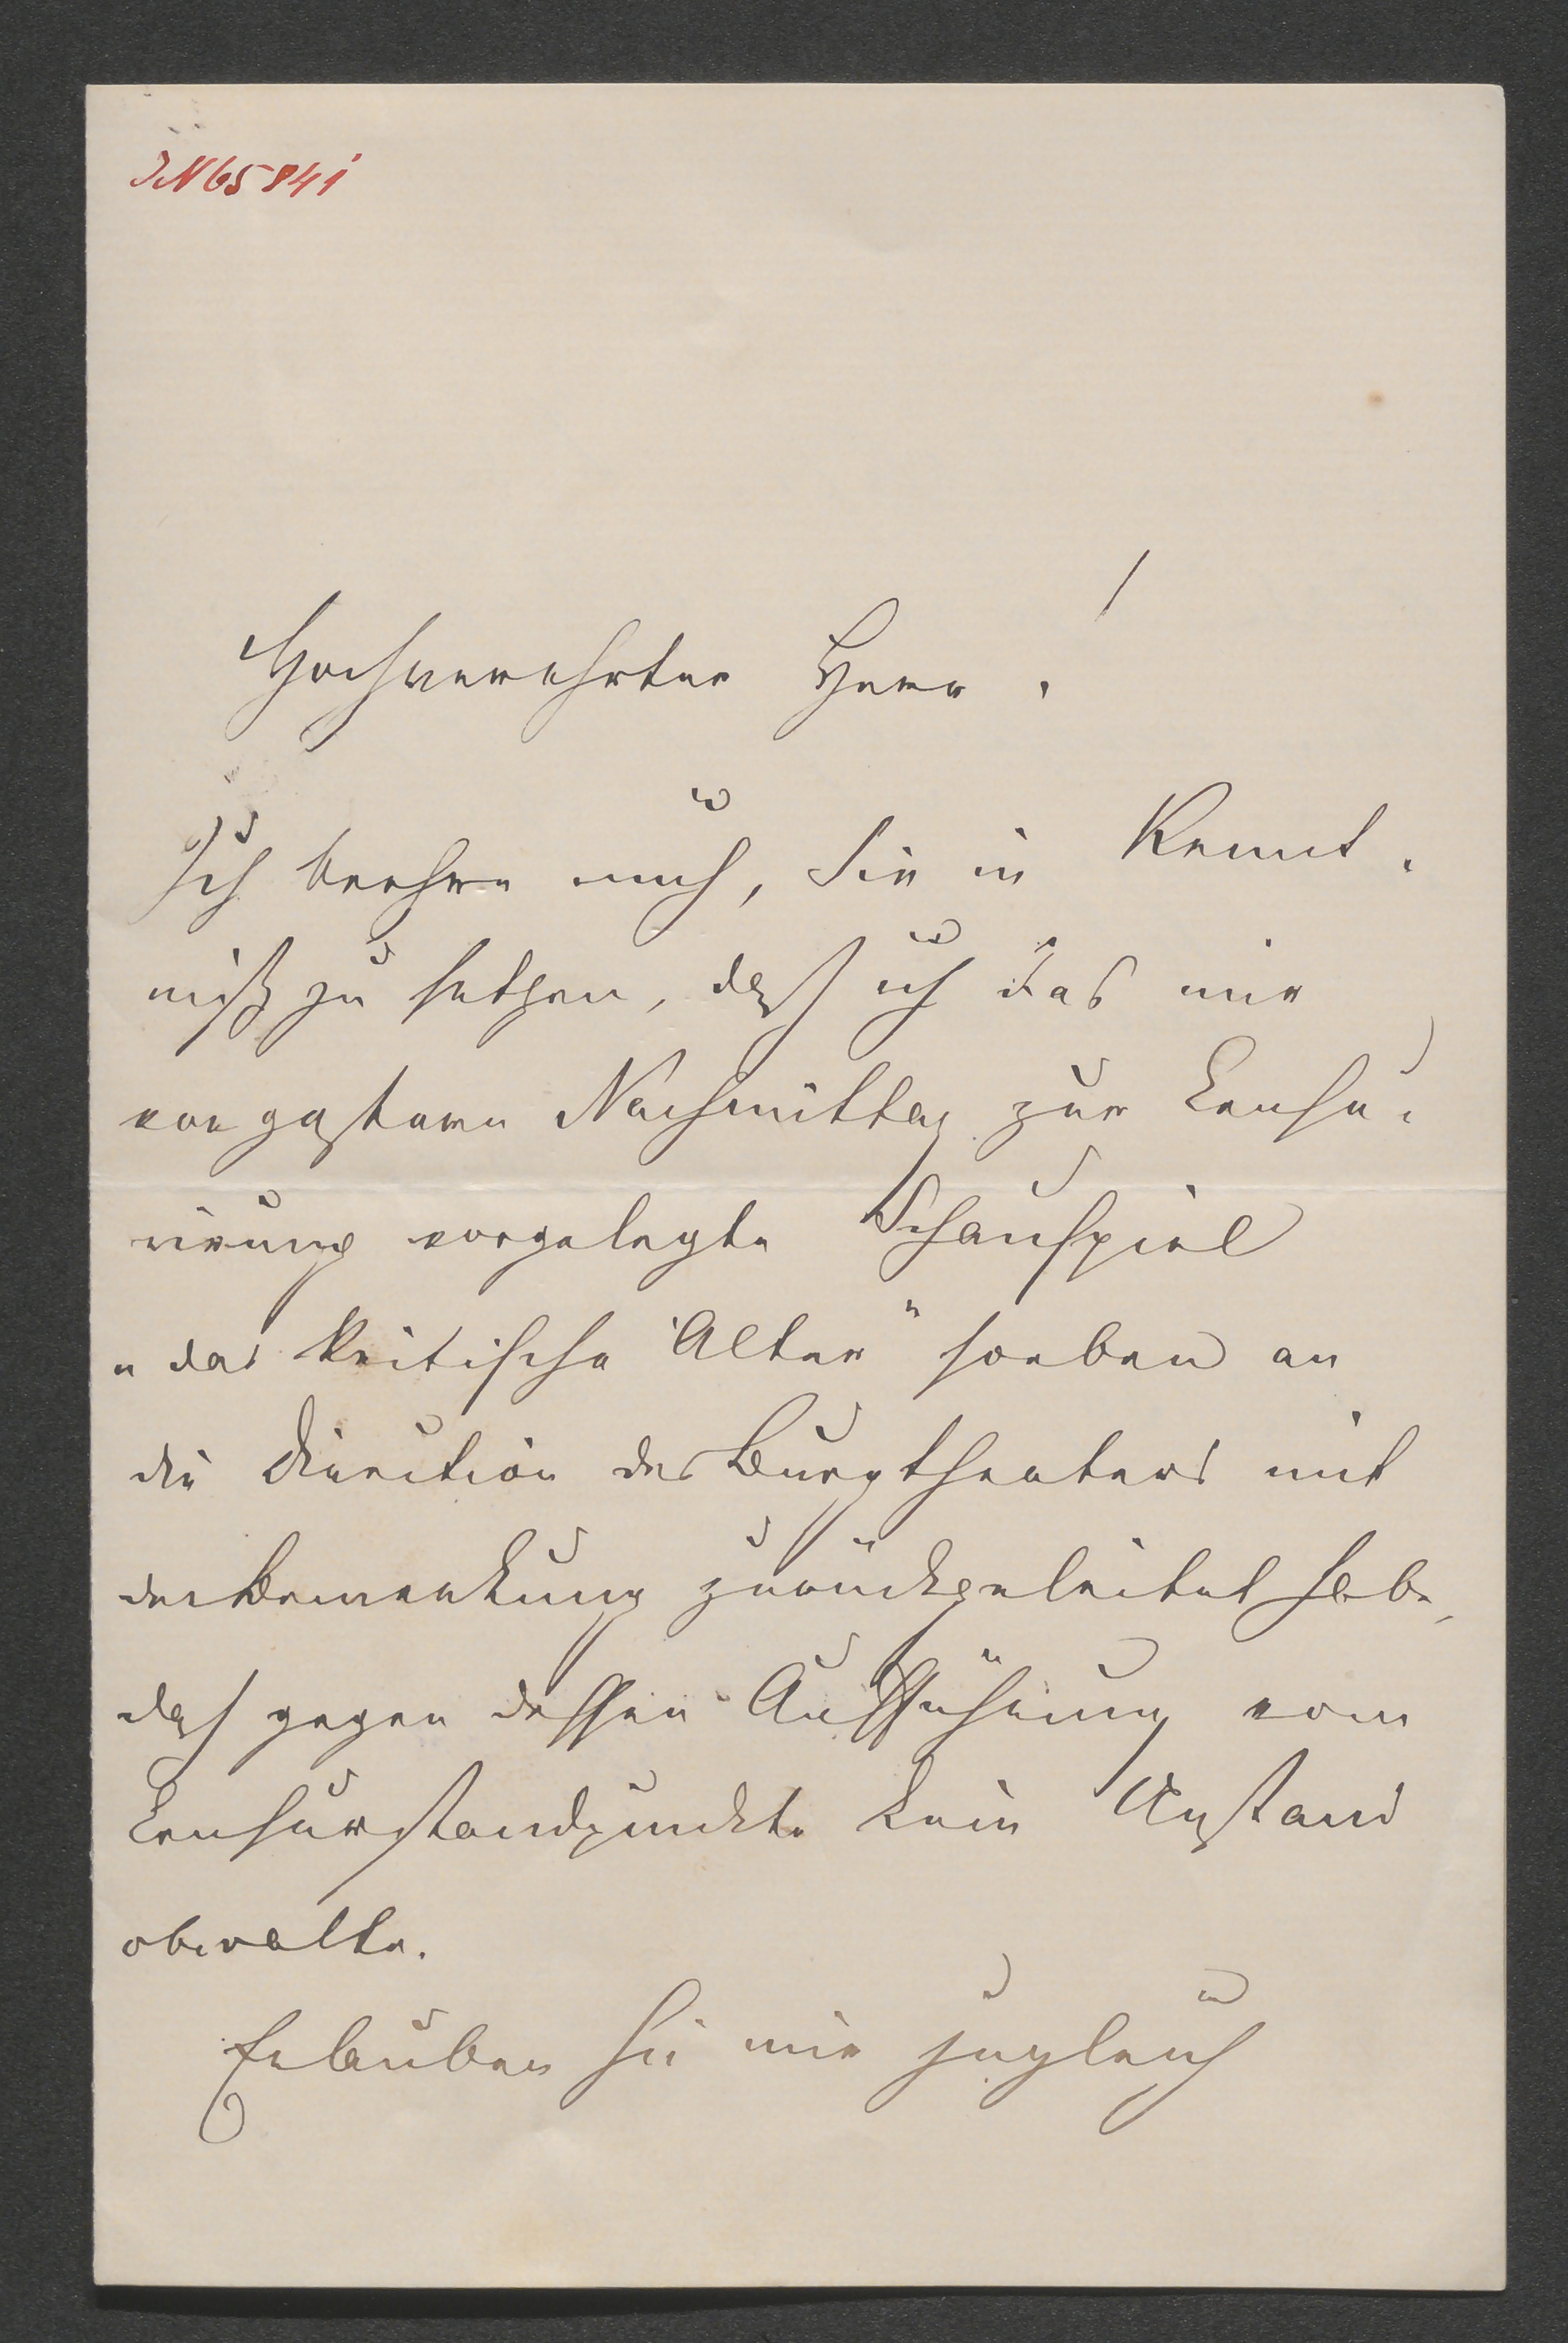 IN 65841
Hochverehrter Herr!
Ich beehre mich, Sie in Kennt-
niß zu setzen, daß ich das mir
vorgestern Nachmittag zur Censu-
rirung vorgelegte Schauspiel
„das kritische Alter“ soeben an
die Direction des Burgtheaters mit
der Bemerkung zurückgeleitet habe,
daß gegen dessen Aufführung vom
Censurstandpunkte kein Anstand
obwalte.
Erlauben Sie mir zugleich